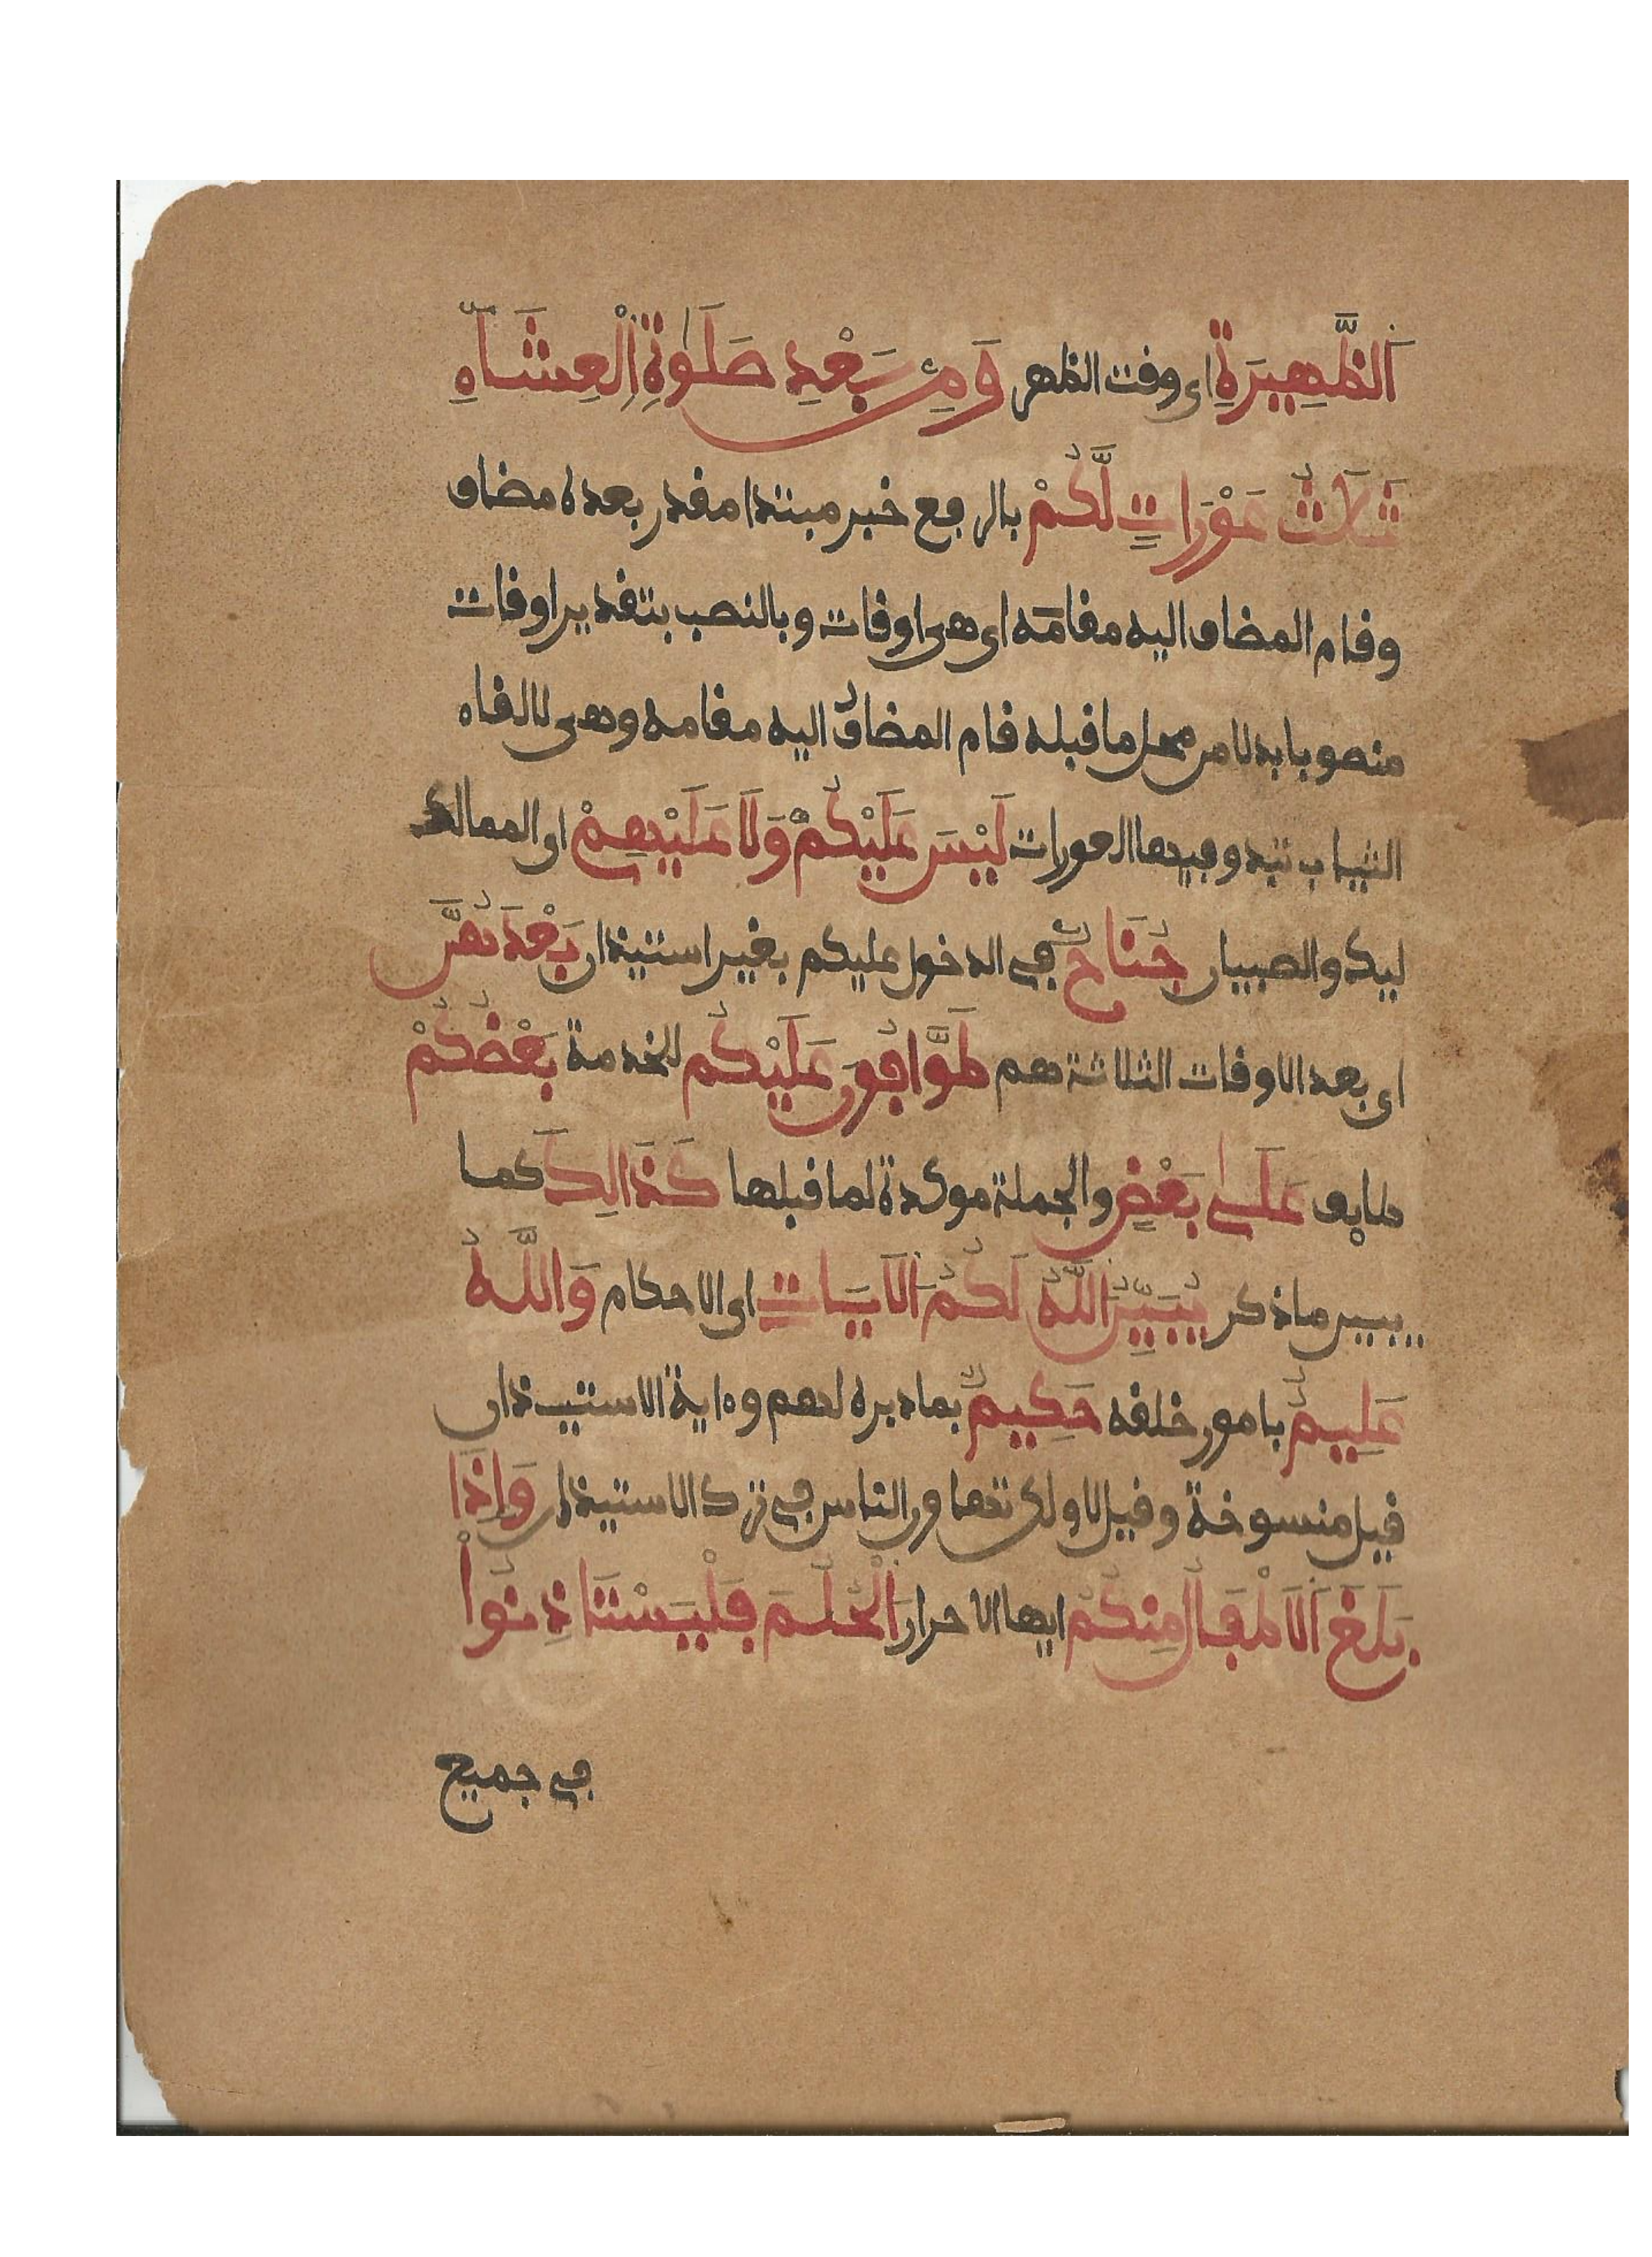 اَلظَّهِيرَةِ اى وقت الظهر وَمِنۢ بَعْدِ صَلَوٰةِ اِ۬لْعِشَآءِ
ثَلَٰثُ عَوْرَاتٍ لَّكُمْ بالرفع خبر مبتدا مقدر بعده مضاف
وقام المضاف اليه مقامه اى هى اوقات وبالنصب بتقدير اوقات
منصوبا بدلا من محل ما قبله قام المضافُ اليه مقامه وهى لالقاء
الثياب تبدو فيها العورات لَيْسَ عَلَيْكُمْ وَلَا عَلَيْهِمْ اى المماليك
ليك والصبيان جُنَاحٌ فى الدخول عليكم بغير استيذان بَعْدَهُنَّ
اى بعد الاوقات الثلاثة هم طَوَّافُونَ عَلَيْكُم للخدمة بَعْضُكُمْ
طايف عَلَىٰ بَعْضٍ والجملة موكدة لما قبلها كَذَالِكَ كما
يبين ما ذكر يُبَيِّنُ اَ۬للَّهُ لَكُمُ اَ۬لَايَاتِ اى الاحكام وَاللَّهُ
عَلِيمٌ بامور خلقه حَكِيمٌ بما دبره لهم وءاية الاستيذان
قيل منسوخة وقيل لا ولكن تهاون الناس فى ترك الاستيذان وَإِذَا
بَلَغَ اَ۬لَاطْفَالُ مِنكُمُ ايها الاحرار اَ۬لْحُلُمَ فَلْيَسْتَاذِنُواْ
فى جميع